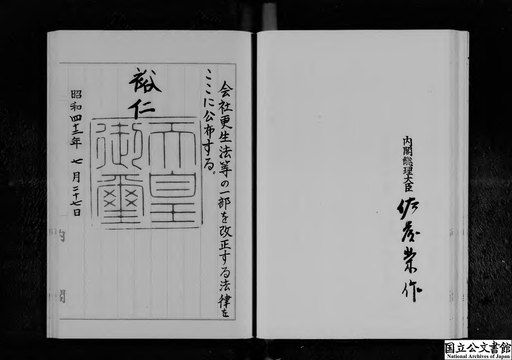 内閣総理大臣 佐藤栄作
会社更生法等の一部を改正する法律を
ここに公布する。
裕仁
天皇
御璽
昭和四十二年 七月二十七日
国立公文書館
National Archives of Japan